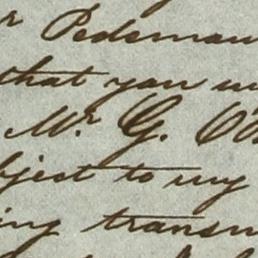 r Pedsman
that you
Mr. G. O
bject to my
ing transm